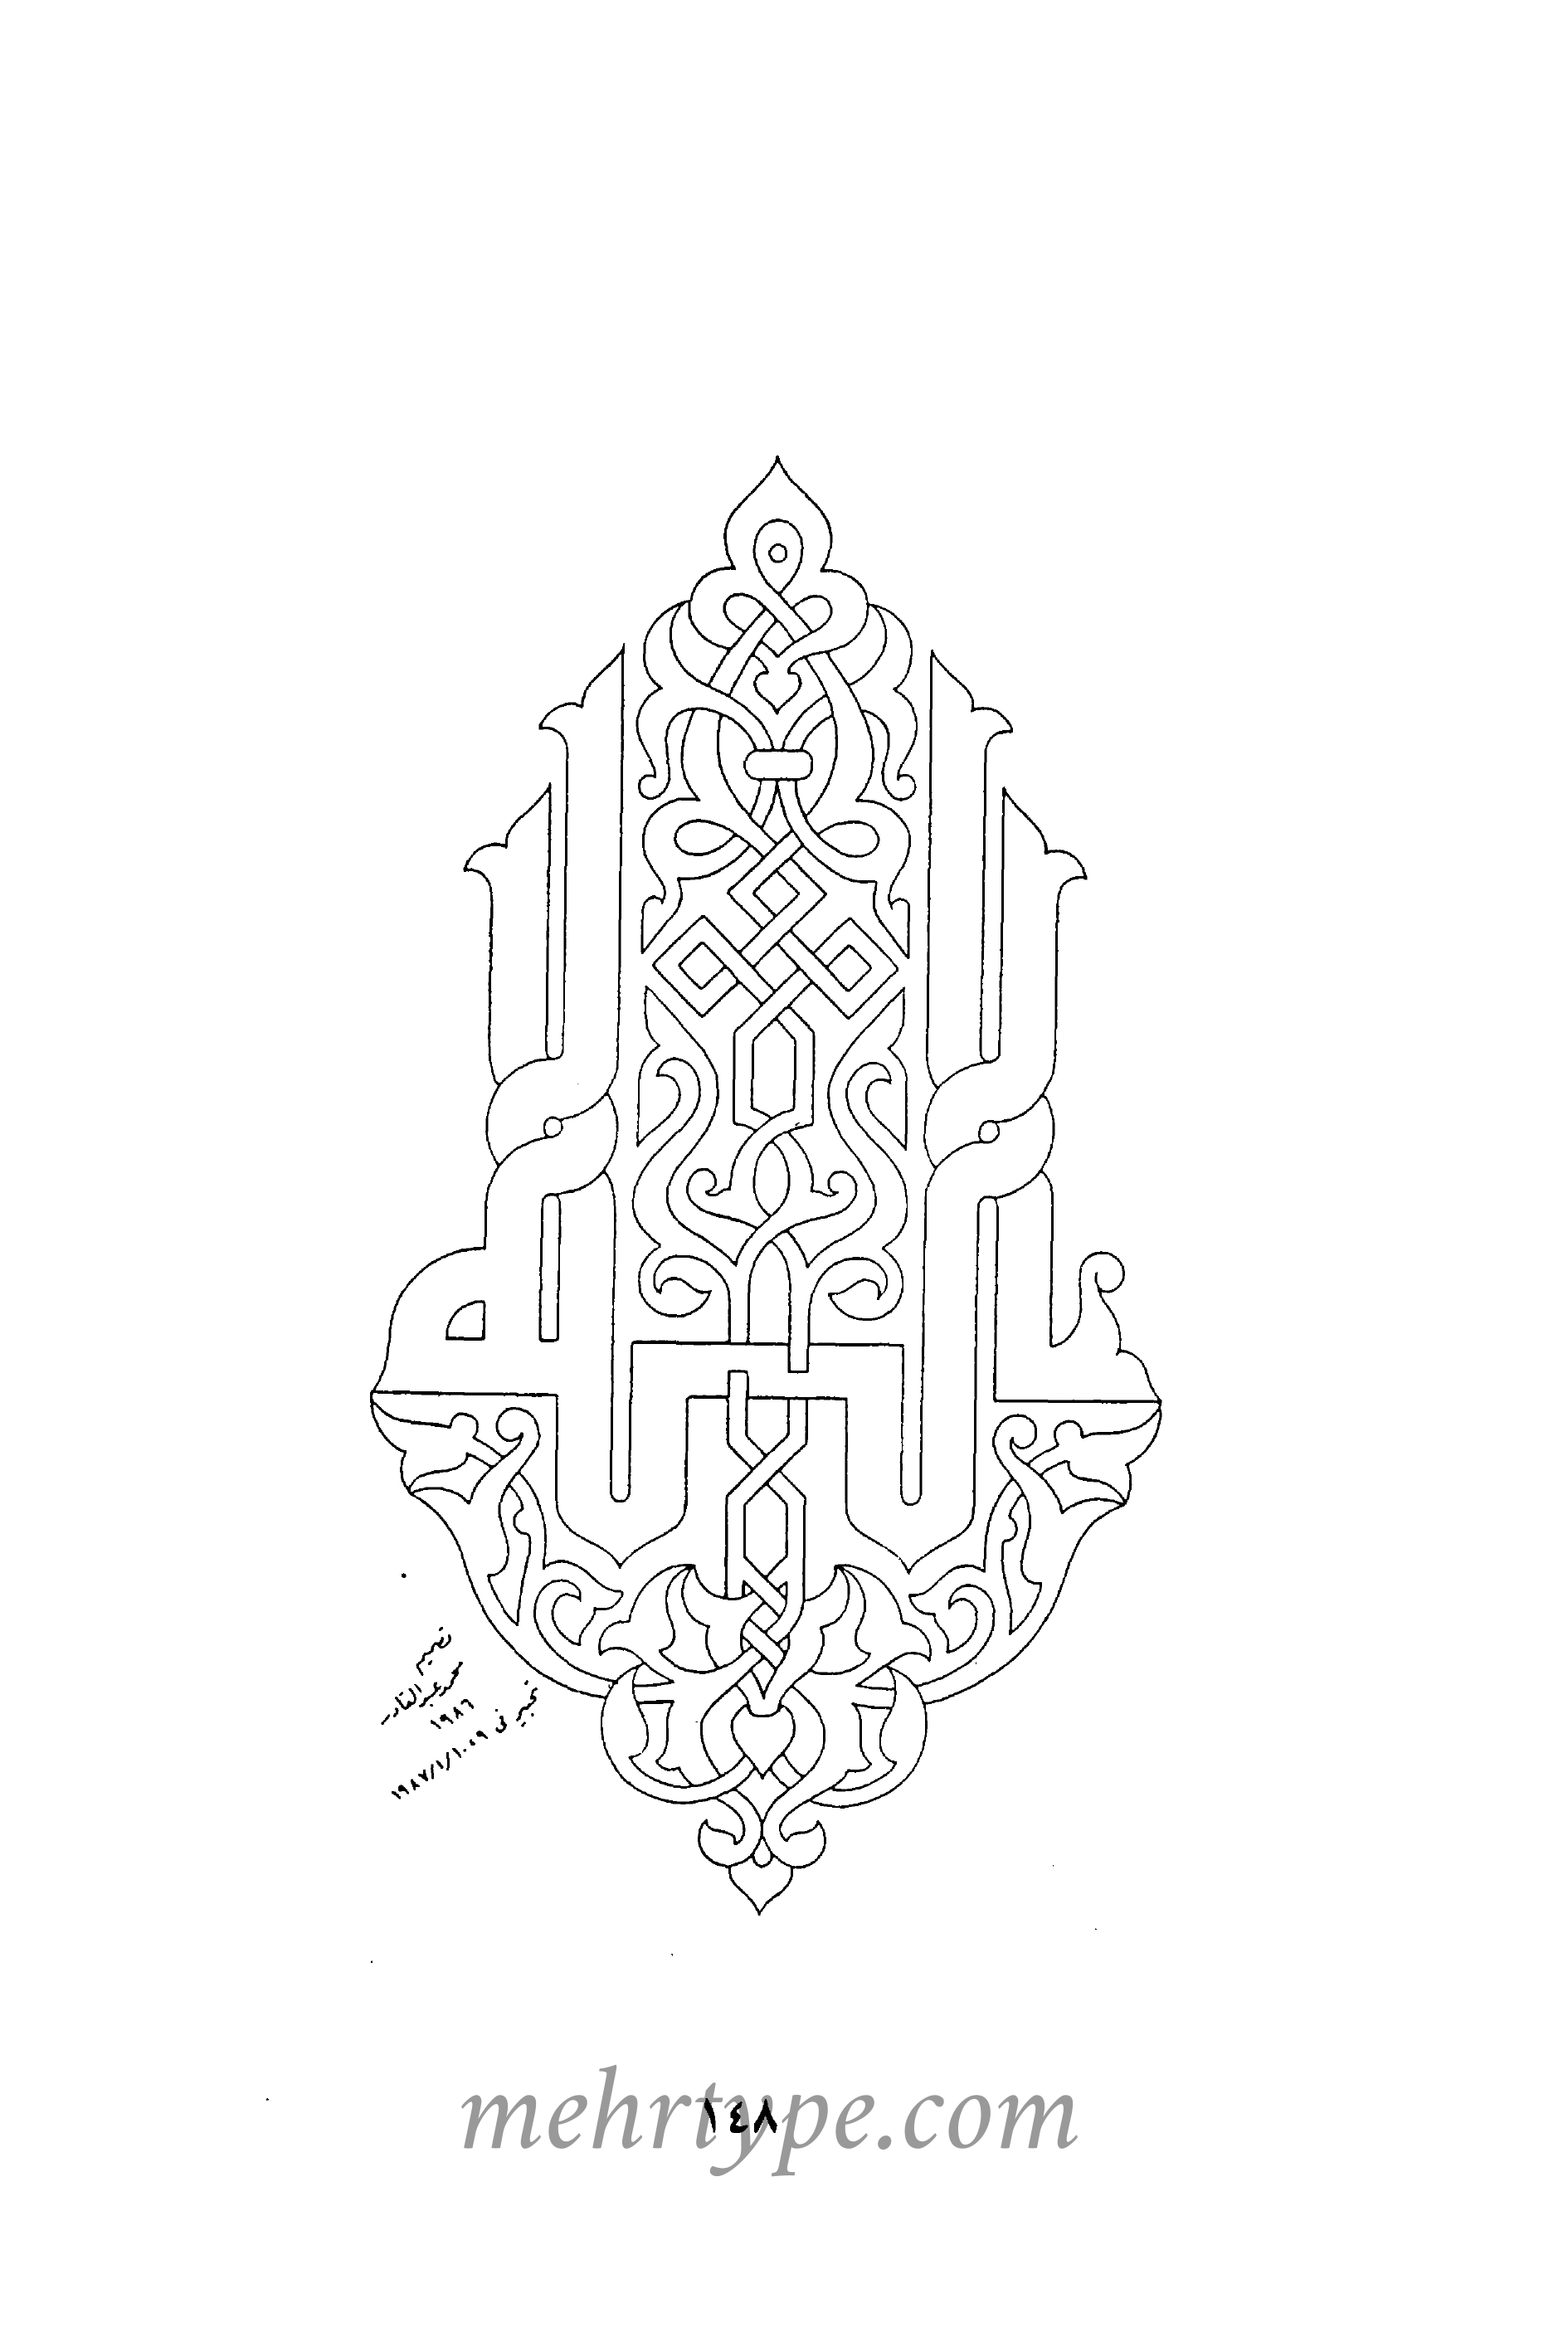 الله
تصميم
محمد عبد القادر
١٩٨٦
تحبير في
١٩٨٧/١/١٠،٩
١٤٨
mehrtype.com